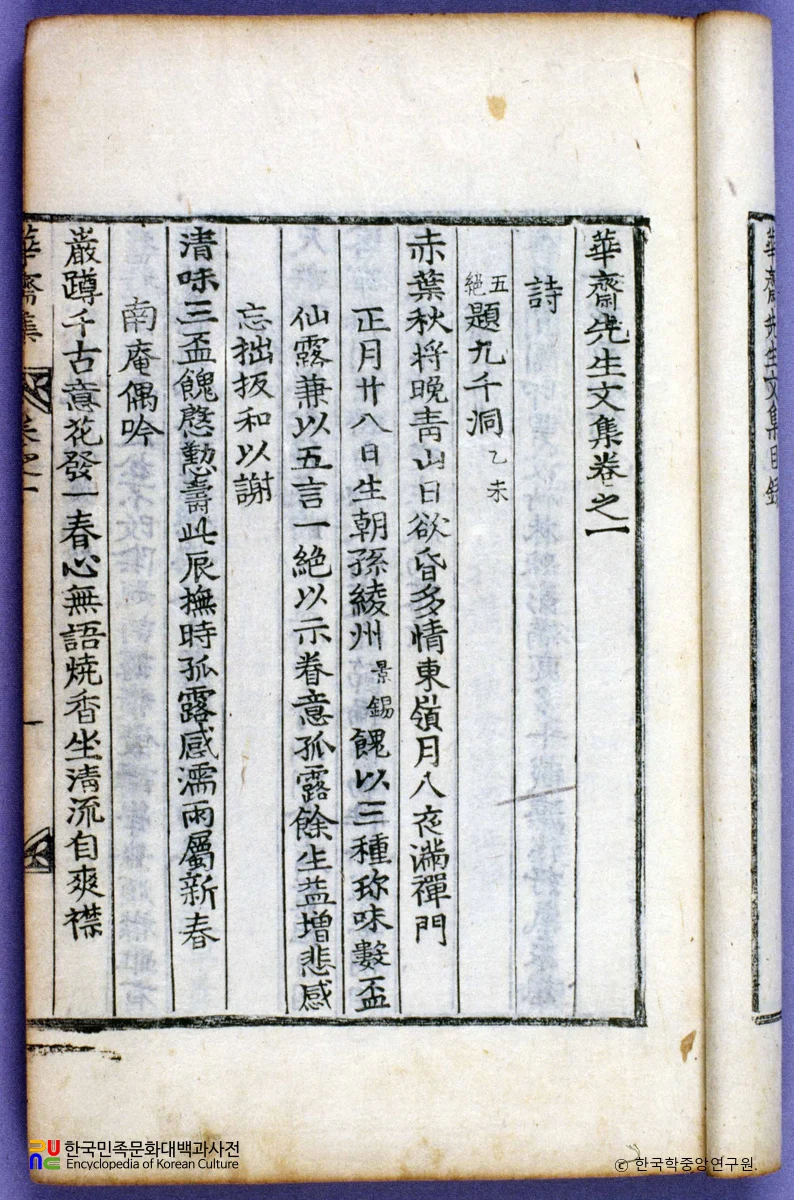 華齋先生文集卷之一
詩
五絕
題九千洞 乙未
赤葉秋將晚靑山日欲昏多情東嶺月入夜滿禪門
正月廿八日生朝孫綾州 景錫 餽以三種珍味數盃
仙露兼以五言一絕以示眷意孤露餘生益增悲感
忘拙扳和以謝
清味三盃餽慇懃壽此辰撫時孤露感濡雨屬新春
南庵偶吟
巖蹲千古意花發一春心無語燒香坐清流自爽襟
華齋集 卷之一 一
華齋先生文集目錄
한국민족문화대백과사전
Encyclopedia of Korean Culture
© 한국학중앙연구원.